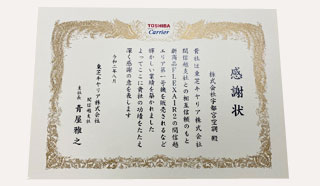 TOSHIBA
Carrier
感謝状
株式会社宇都宮空調 殿
貴社は東芝キヤリア株式会社
関信越支社との相互信頼のもと
新商品FLEXAIR2の関信越
エリア第一号機を販売されるなど
輝かしい業績を築かれました
よってここに貴社の功績をたたえ
深く感謝の意を表します
令和二年八月
東芝キヤリア株式会社
関信越支社
支社長 青屋雅之